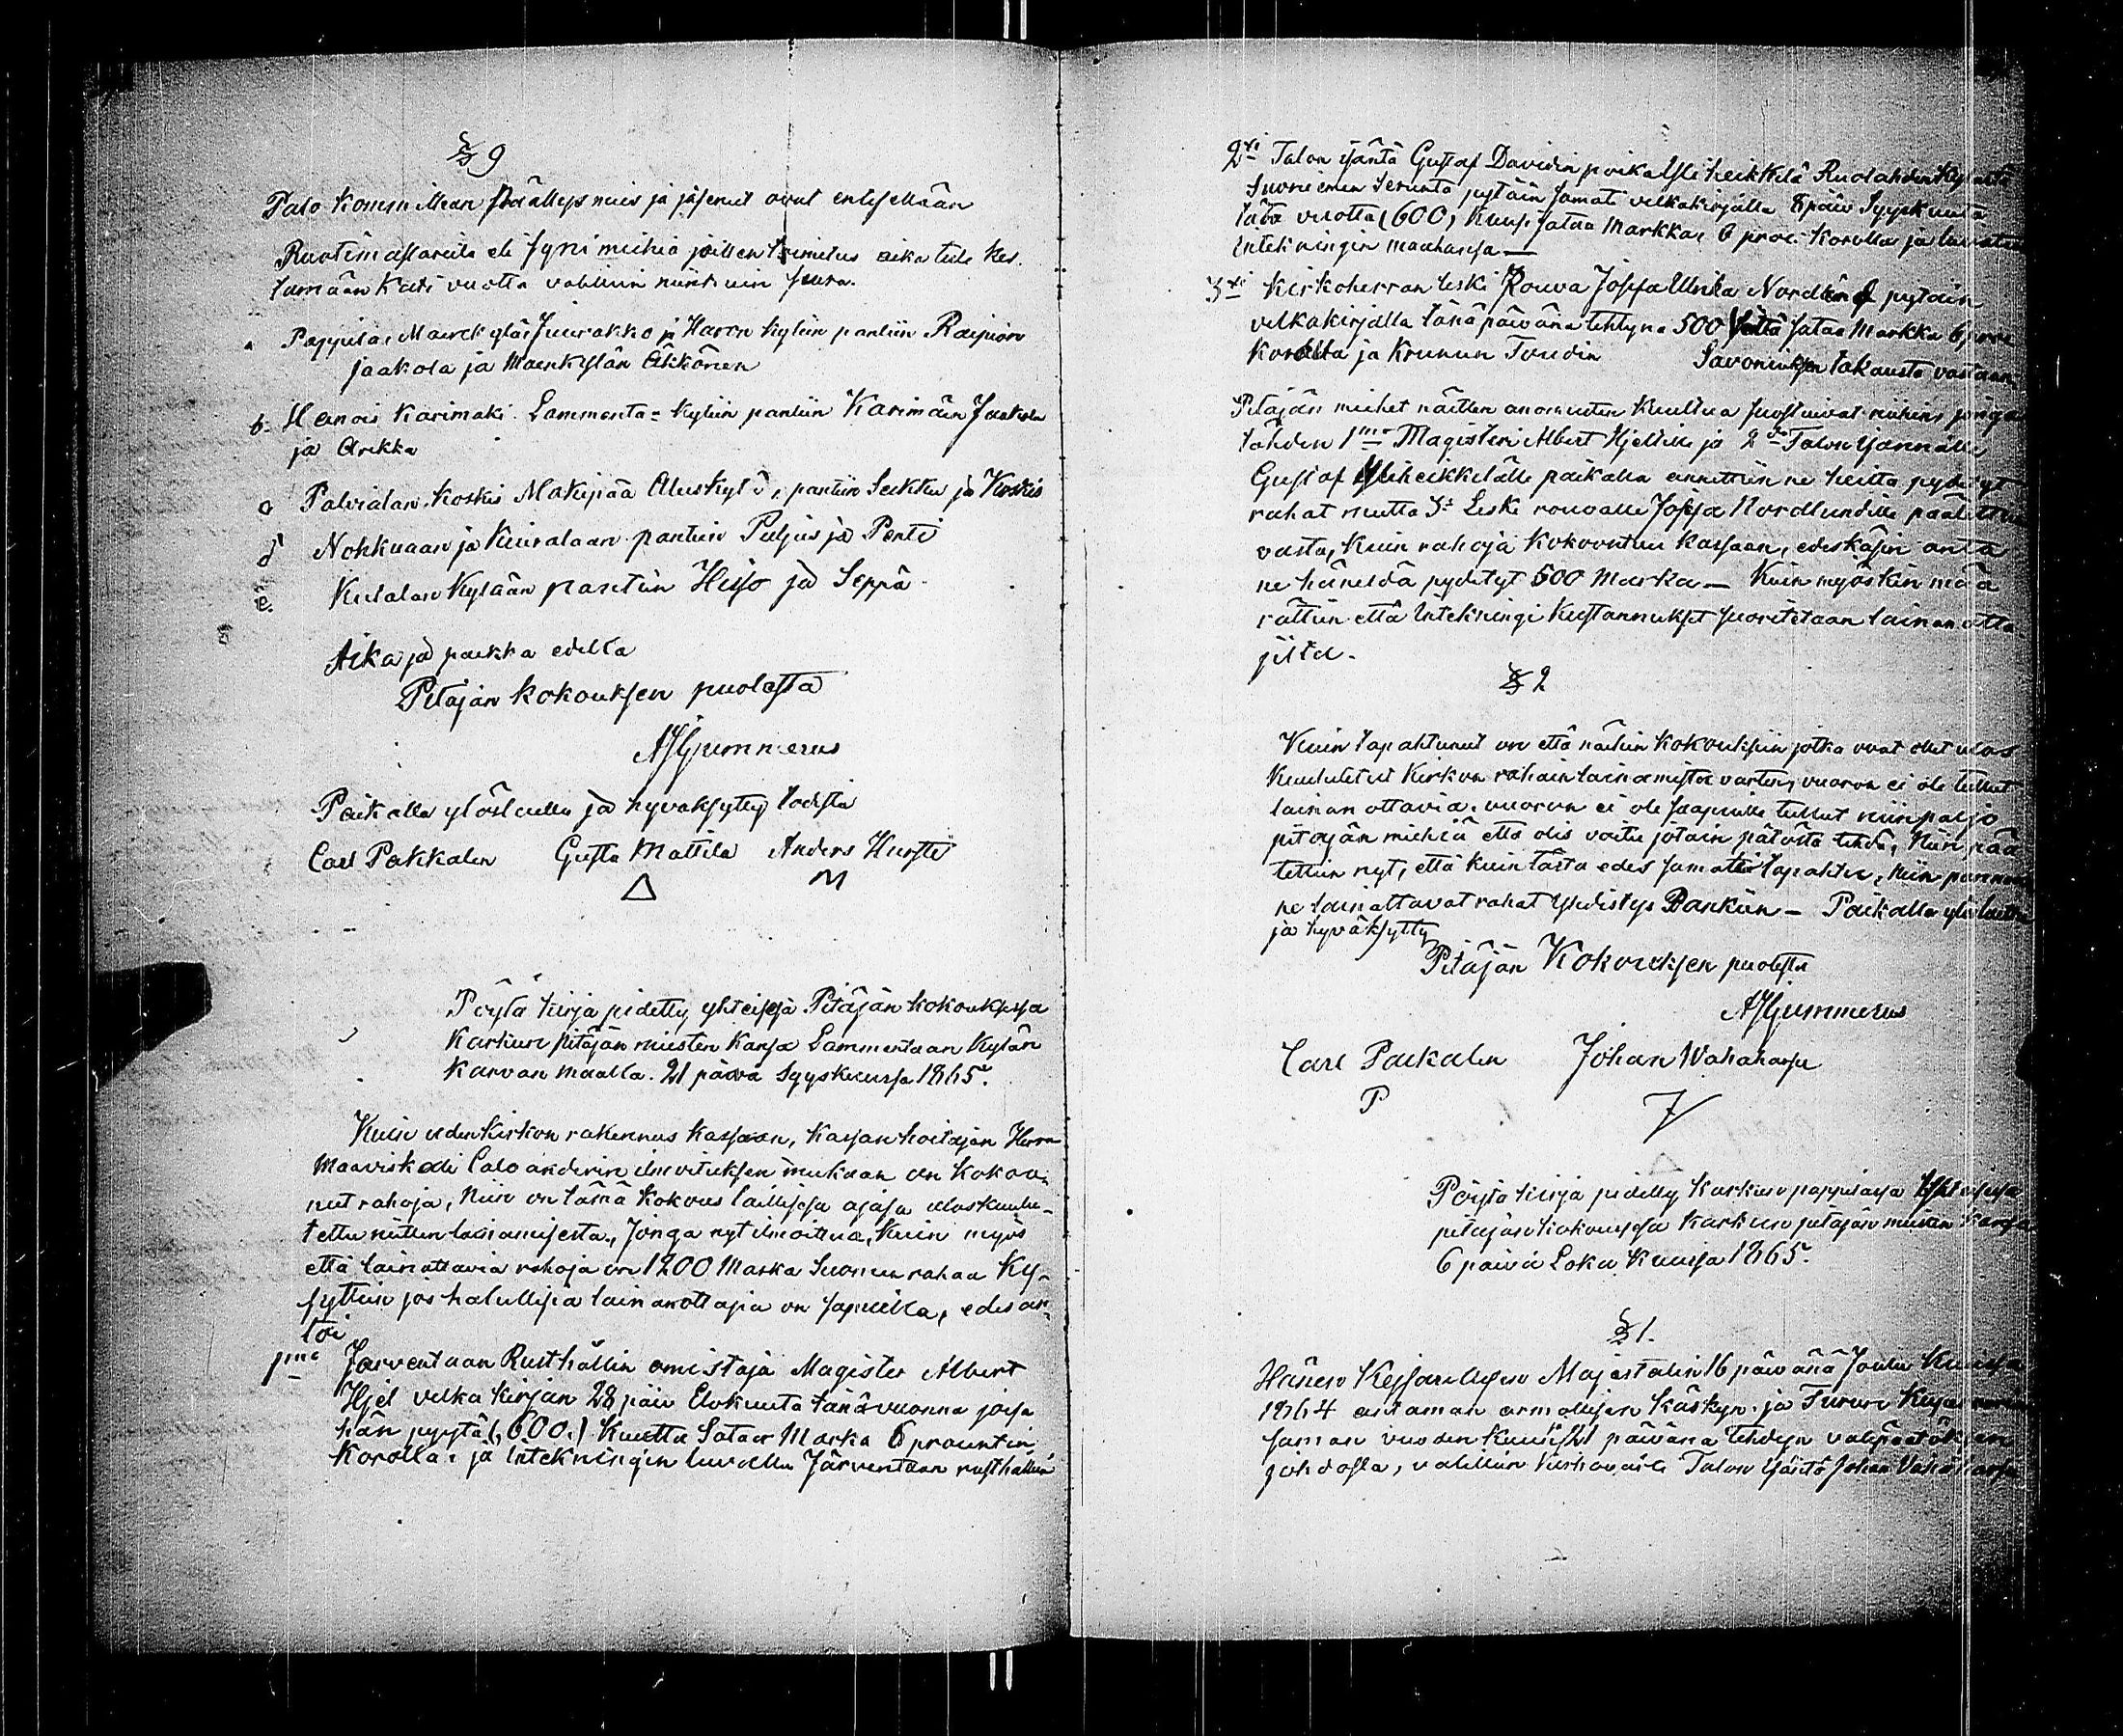 § 9
Palo kommittean Päällysmies ja jäsenet ovat entisellään
Ruotimästareita eli synimiehiä joitten toimitus aika tule kes-
tämään kaxi vuotta valittiin niinkuin seura.
a Pappila, Maenkylä, Juurakko ja Haron kyliin pantiin Raipion
Jaakola ja Maenkylän Äkkönen
b. Heinois Karimäki Lammenta= kyliin pantiin Karimäen Jaakola
ja Arikka
c Palvialan, Koskis Mäkipää Aluskylä, pantiin Seikku ja Koskis
d Nohkuaan ja Kuiralaan pantiin Puljus ja Penti
e. Kulalan Kylään pantiin Heiso ja Seppä
Aika ja paikka edellä
Pitäjän kokouksen puolesta
AJGummerus
Paikalla ylösluettu ja hyväksytty todista
Carl Pakkalen Gusta Mattila Anders Hursti
M
Pöytä kirja pidetty yhteisessä Pitäjän kokouksessa
Karkun pitäjän miesten kansa Lammentaan Kylän
Karvan maalla. 21 päivä Syyskuussa 1865.
Kuin uden kirkon rakennus kassaan, kassan hoitajan Herra
Maaviskali Caloanderin ilmoituksen mukaan on kokoo-
nut rahoja, niin on tämä kokous laillisessa ajassa uloskuulu-
tettu niitten lainamisesta, Jonga nyt ilmoittua, kuin myös
että lainattavia rahoja on 1200 Marka Suomen rahaa Ky-
syttiin jos halullisia lainanottajia on sapuilla, edesan-
toi
1mo Järventaan Rusthollin omistaja Magister Albert
Hjelt velka kirjan 28 päiv Elokuuta tänä vuonna jossa
hän pyytä (600.) Kuutta Sataa Marka 6 prosentin
Korolla. ja intekningin luvalla Järventaan rusthollin
2xi Talon isäntä Gustaf Davidin poika Yliheikkilä Ruolahden kylästä
Suoniemen Seurasta pytäin samati velkakirjalla 8 päiv Syyskuuta
tätä vuotta (600) Kuusi sataa Markka, 6 proc: Korolla ja luvatu
Intekningin maahansa —
3xi Kirkoherran leski Rouva Josefa Ulrika Nordlund pytäin
velkakirjalla tänäpäivänä tehtynä 500 Sattä sataa Markka 6 proc
Korolla ja Krunun Foudin Savoniuksen takausta vastaan
Pitäjän miehet näitten anomusten kuultua suostuivat niihin, jonga
tähden 1mo Magisteri Albert Hjeltille ja 2do Talon isännälle
Gustaf Yliheikkilälle paikalla annettiin ne heiltä pydetyt
rahat mutta 3o Leski rouvalle Josefa Nordlundille päätettiin
vasta, kuin rahoja kokoontuu kassaan, edeskäsin anta
ne häneldä pydetyt 500 Marka — Kuin myöskin mää
rättiin että Intekningi kustannukset suoritetaan lainan otta
jilta.
§ 2
Kuin tapahtunut on että näihin kokouksiin jotka ovat olet ulos
kuulutetut Kirkon rahain lainamista varten, vuoron ei ole tullut
lainan ottavia, vuoron ei ole saapuille tullut niin paljo
pitäjän miehiä että olis voitu jotain päätöstä tehdä, Niin pää
tettiin nyt, että kuin tästä edes samati tapahtu, niin pannaan
ne lainattavat rahat Yhdistys Bankiin — Paikalla ylösluettu
ja hyväksytty
Pitäjän Kokouksen puolesta
AJGummerus
Carl Paekalen Johan Wahaharja
P
Pöytä kirja pidetty Karkun pappilassa Yhteisessä
pitäjän kokouksessa Karkun pitäjän miesten kansa
6 päivä Loka Kuussa 1865.
§ 1.
Hänen Keisarillisen Majestätin 16 päivänä Joulu Kuussa
1864 andaman armollisen käskyn ja Turun
saman vuoden päivänä tehdyn välipäätöksen
johdosta, valittiin Talon isäntä Johan Vahaharja